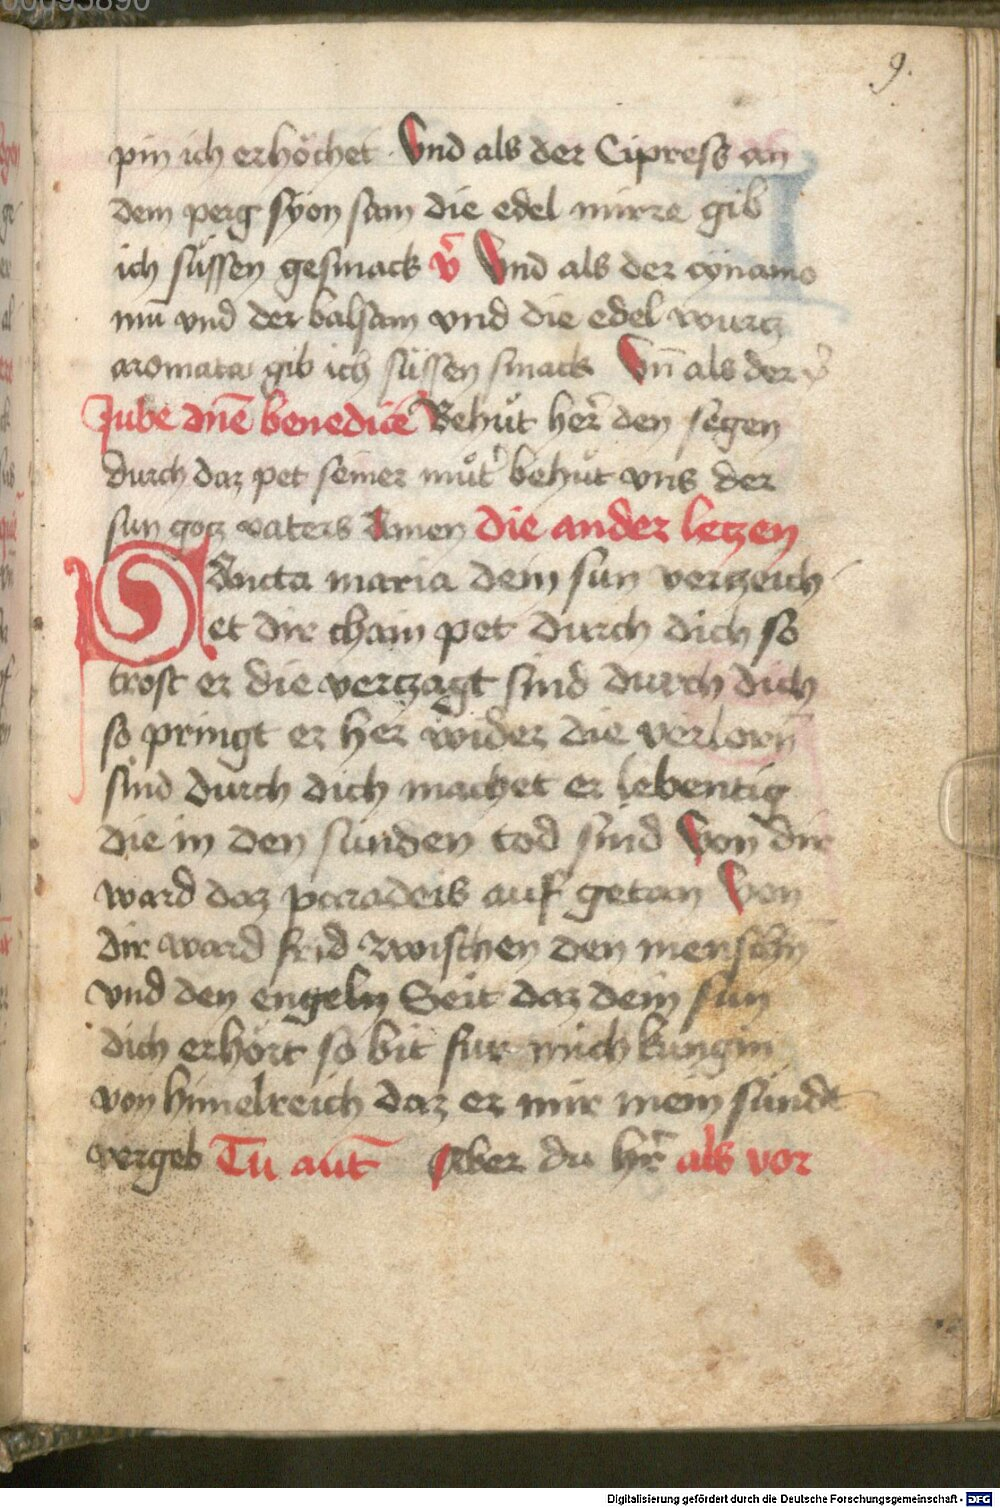 9.
pin ich erhöchet Vnd als der Cipress an
dem perg syon sam die edel mirre gib
ich süssen gesmack v̄ Vnd als der cynamo
mū vnd der balsam vnd die edel wurcz
aromata gib ich süssen smack Vn̄ als der
Jube dn̄e benedicē Behüt her̄ den segen
durch daz pet seiner mut̄ behüt vns der
sun gocz vaters Amen die ander leczen
SAncta maria dem sun verczeich
et dir chain pet durch dich so
trost er die verczagt sind durch dich
so pringt er her wider die verlorn
sind durch dich machet er lebentig
die in den sünden tod sind Von dir
ward daz paradeis auf getan Von
dir ward frid zwischen den menschn̄
vnd den engeln Seit daz dein sun
dich erhört so bit fur mich kungin
von himelreich daz er mir mein sündt
vergeb Tu aut̄ Aber du hr̄ als vor
Digitalisierung gefördert durch die Deutsche Forschungsgemeinschaft - DFG